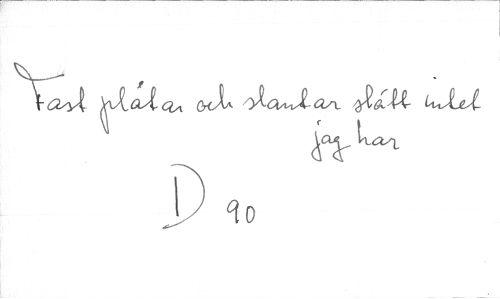 Fast plåtar och slantar slätt intet
jag har
D 90